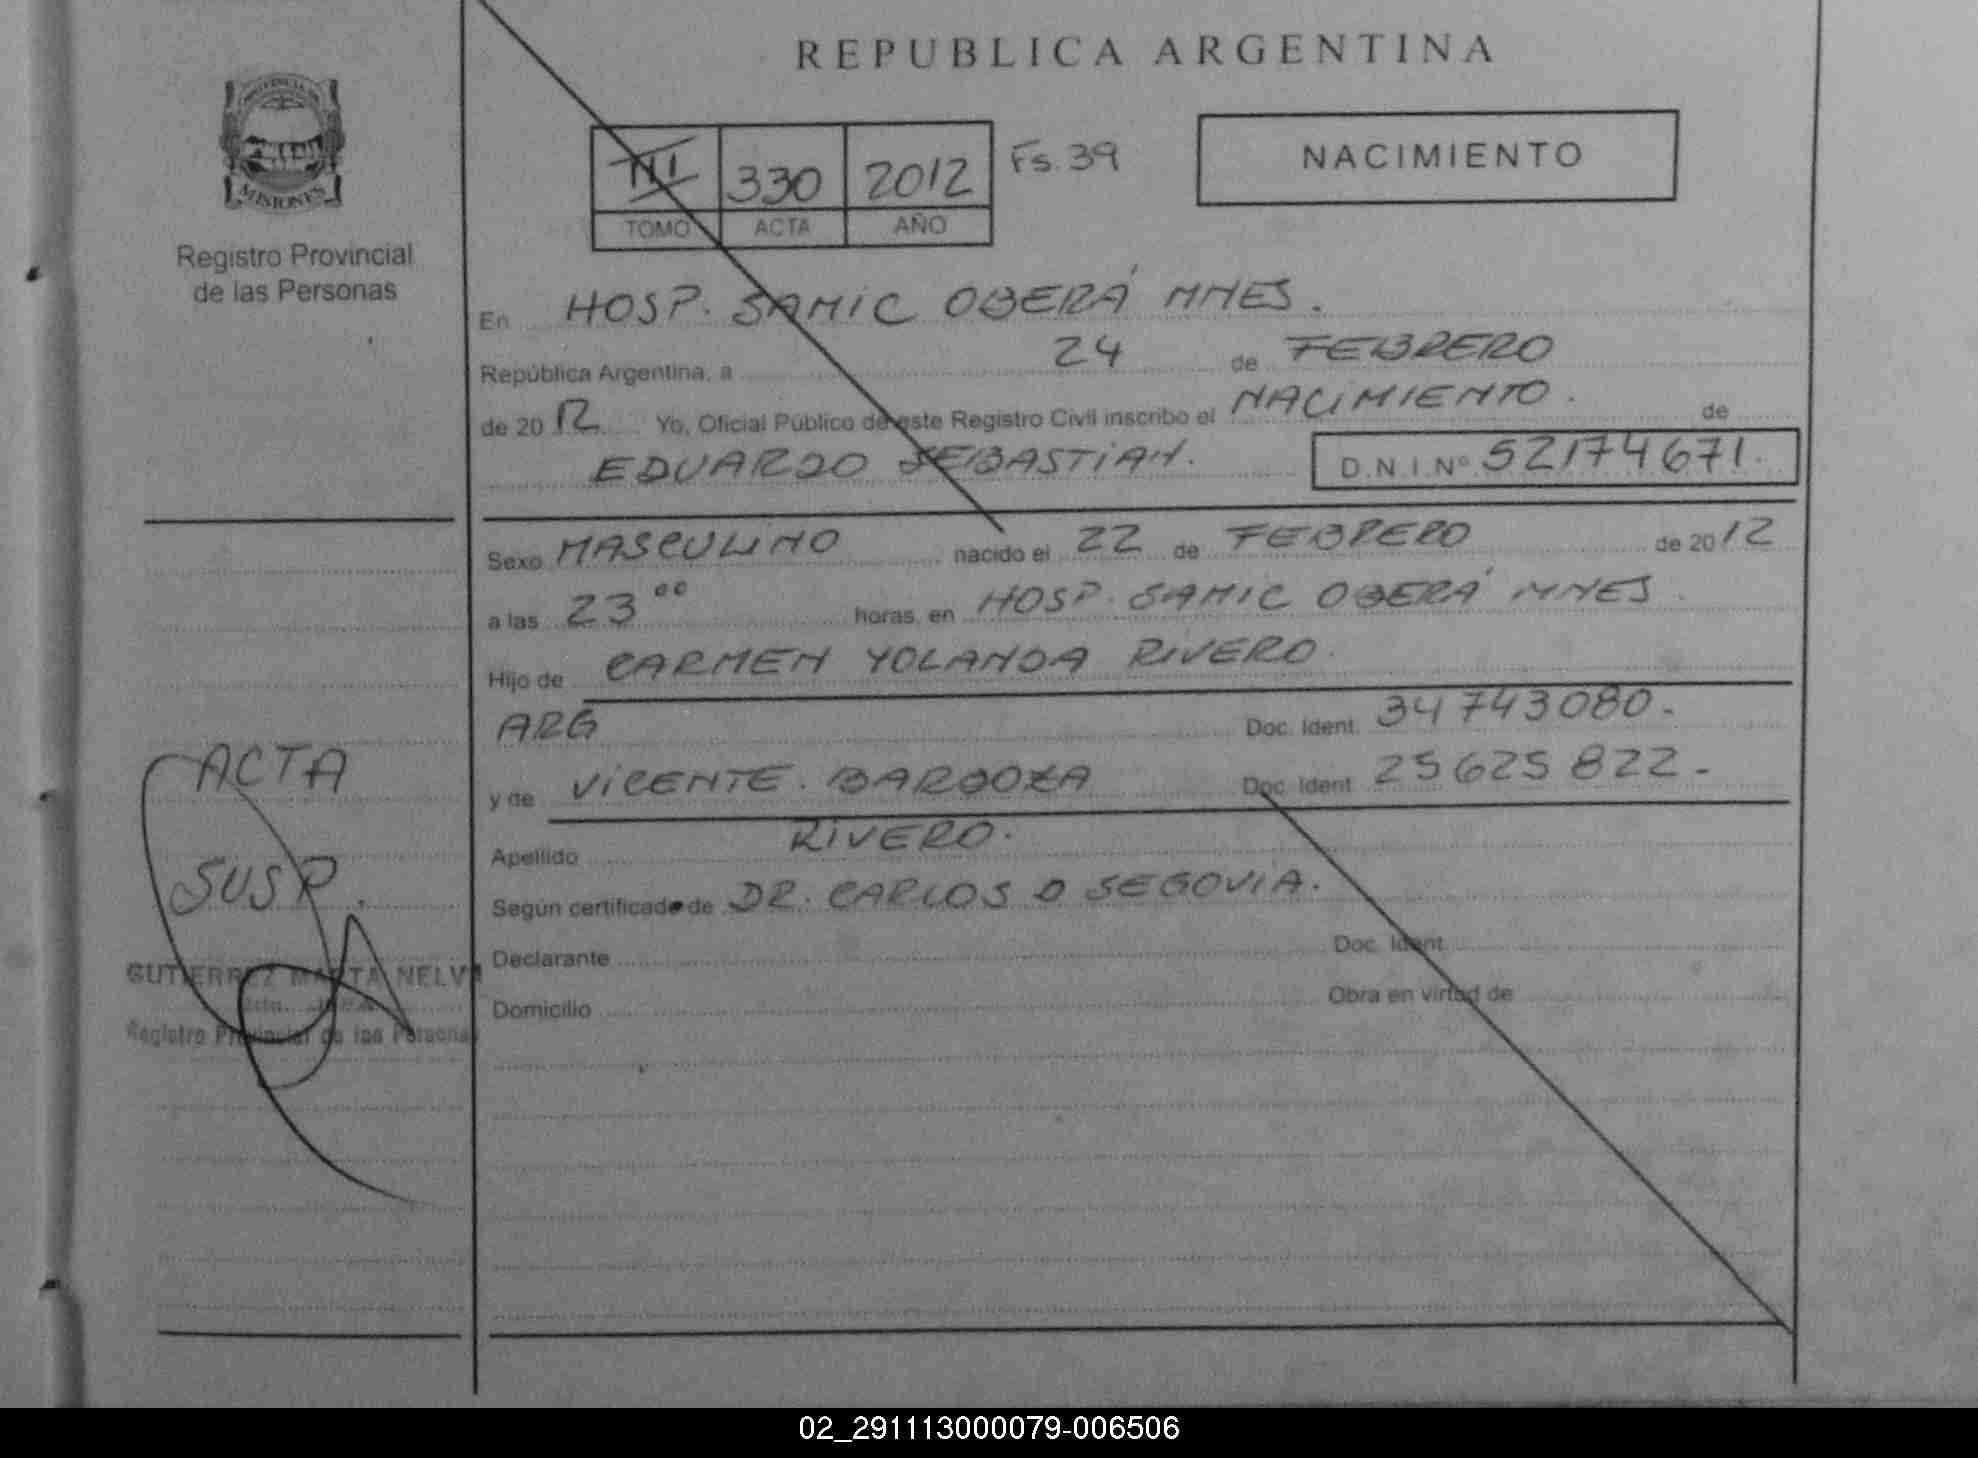 REPUBLICA ARGENTINA
PROVINCIA DE
MISIONES
Registro Provincial
de las Personas
III 330 2012 Fs. 39
TOMO ACTA AÑO
NACIMIENTO
En HOSP. SAMIC OBERÁ MNES.
República Argentina, a 24 de FEBRERO
de 2012 Yo, Oficial Público de este Registro Civil inscribo el NACIMIENTO. de
EDUARDO SEBASTIAN. D.N.I. Nº 52174671.
Sexo MASCULINO nacido el 22 de FEBRERO de 2012
a las 23 00 horas, en HOSP. SAMIC OBERÁ MNES.
Hijo de CARMEN YOLANDA RIVERO.
ARG Doc. Ident. 34743080.-
y de VICENTE. BARBOZA Doc. Ident. 25625822.-
Apellido RIVERO.
Según certificado de DR. CARLOS D SEGOVIA.
Declarante Doc. Ident.
Domicilio Obra en virtud de
ACTA
SUSP.
GUTIERREZ MARTA NELVA
Registro Provincial de las Personas
02_291113000079-006506